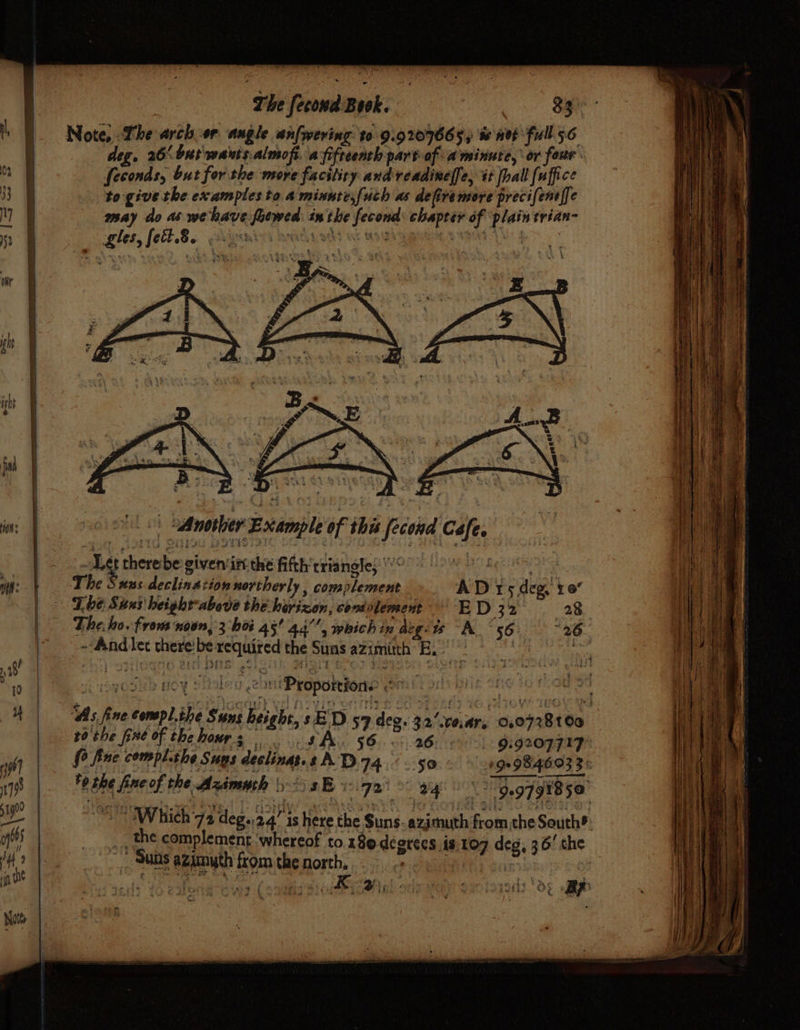 The ſecond Book. 83
Note, The arch or angle anſwering to 9.9207665, is not full 56
deg. 26′ but wants almoſt a fifteenth part of a minute, or four
ſeconds, but for the more facility and readineſſe, it ſhall ſuffice
to give the examples to a minute, ſuch as deſire more preciſeneſſe
may do as we have ſhewed in the ſecond chapter of plain trian-
gles, ſect.8.
D B A E B
1 2 3
B B A D B A D
D B E A B
4 5 6
A B E D A E D
Another Example of this ſecond Caſe.
Let there be given in the fifth triangle,
The Suns declination northerly, complement AD 15 deg. 10′
The Suns height above the horizon, complement ED 32 28
The ho. from noon, 3 hos 45′ 44″, which in deg. is A 56 26
And let there be required the Suns azimuth E.
Proportion.
As ſine compl. the Suns height, s ED 57 deg. 32′ co.ar. 0.0728100
to the ſine of the hour s A 56 26 9.9207717
ſo ſine compl. the Suns declinat. s AD 74 50 9.9846033
to the ſine of the Azimuth s E 72 24 9.9791850
Which 72 deg. 24′ is here the Suns azimuth from the South
the complement whereof to 180 degrees is 107 deg. 36′ the
Suns azimuth from the north.
K 2 By